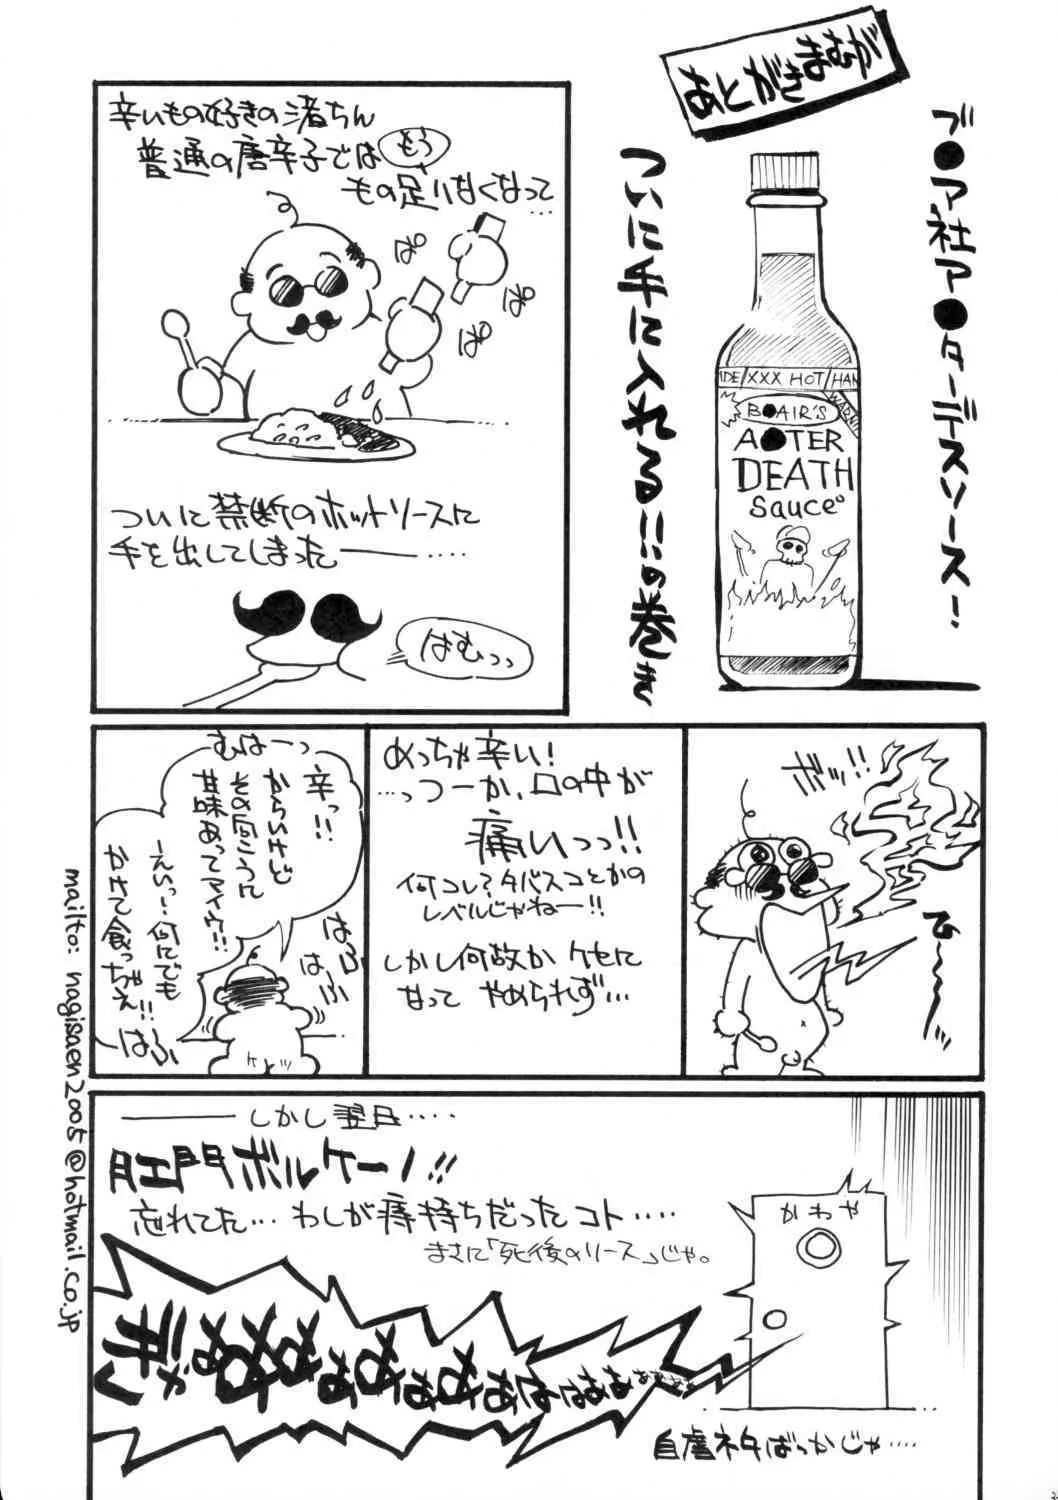 あとがきまむが
ブ●ア社ア●ターデスソース!
ついに手に入れる!!の巻き
IDE/XXX HOT/HAN
WARNIN
B●AIR'S
A●TER
DEATH
Sauce
辛いもの好きの渚ちん
普通の唐辛子では もう
もの足りなくなって
…
ぱ
ぱ
ぱ
ぱ
ついに禁断のホットソースに
手を出してしまった――….
はむっっ
ガッ!!
ひ〜〜〜〜ッ
めっちゃ辛い!
…っつーか、口の中が
痛いっっ!!
何コレ?タバスコとかの
レベルじゃねー!!
しかし何故か クセに
なって やめられず…
むはーっ
辛っ!!
からいけど
その向こうに
甘味あってマイウ!!
えいっ…何にでも
かけて食っちゃえ!!
はふ
はふ
はふ
ケッ
――しかし翌日….
肛門ボルケーノ!!
忘れてた…わしが痔持ちだったコト….
まさに「死後のソース」じゃ。
かわや
自虐ネタばっかじゃ….
mailto: nagisaen2005@hotmail.co.jp